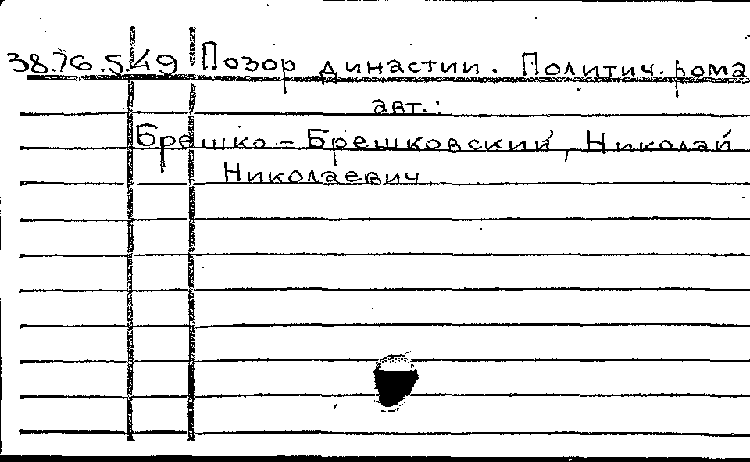 38.76.5.49 Позор династии. Политич. рома
авт.:
Брешко-Брешковский, Николай
Николаевич